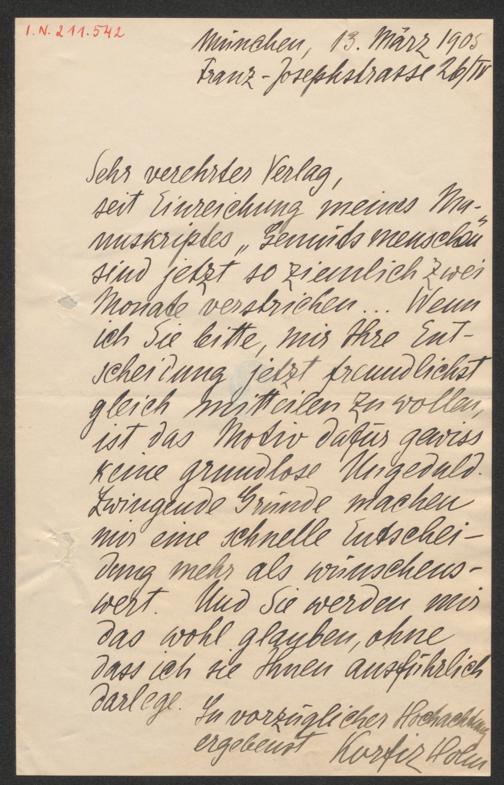 I.N. 211.542
München, 13. März 1905
Franz-Josephstrasse 26/IV
Sehr verehrter Verlag,
seit Einreichung meines Ma-
nuskriptes „Gemütsmenschen"
sind jetzt so ziemlich zwei
Monate verstrichen... Wenn
ich Sie bitte, mir Ihre Ent-
scheidung jetzt freundlichst
gleich mitteilen zu wollen,
ist das Motiv dafür gewiss
keine grundlose Ungeduld.
Zwingende Gründe machen
mir eine schnelle Entschei-
dung mehr als wünschens-
wert. Und Sie werden mir
das wohl glauben, ohne
dass ich sie Ihnen ausführlich
darlege.
In vorzüglicher Hochachtung
ergebenst Korfiz Holm